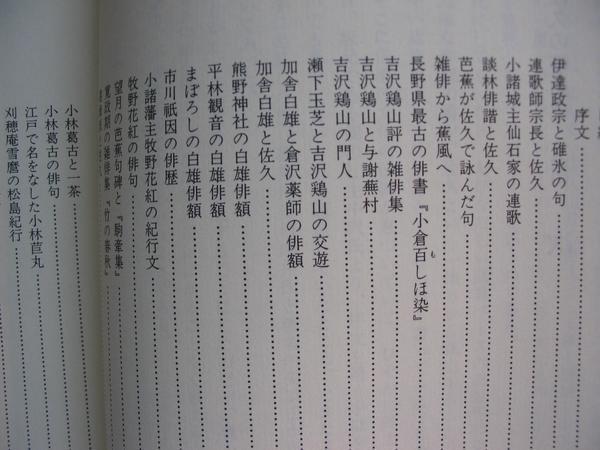 序文
伊達政宗と碓氷の句
連歌師宗長と佐久
小諸城主仙石家の連歌
談林俳諧と佐久
芭蕉が佐久で詠んだ句
雑俳から蕉風へ
長野県最古の俳書『小倉百しほ染』
も
吉沢鶏山評の雑俳集
吉沢鶏山と与謝蕪村
吉沢鶏山の門人
瀬下玉芝と吉沢鶏山の交遊
加舎白雄と倉沢薬師の俳額
加舎白雄と佐久
熊野神社の白雄俳額
平林観音の白雄俳額
まぼろしの白雄俳額
市川祇因の俳歴
小諸藩主牧野花紅の紀行文
牧野花紅の俳句
望月の芭蕉句碑と『駒牽集』
寛政期の雑俳集『竹の春秋』
小林葛古と一茶
小林葛古の俳句
江戸で名をなした小林苣丸
刈穂庵雪麿の松島紀行